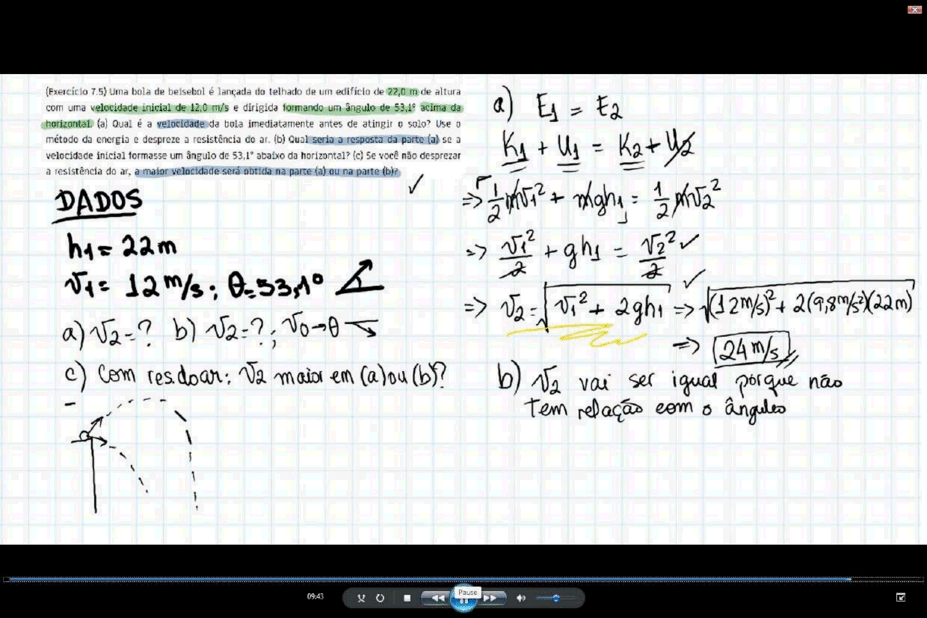 (Exercício 7.5) Uma bola de beisebol é lançada do telhado de um edifício de 22,0 m de altura
com uma velocidade inicial de 12,0 m/s e dirigida formando um ângulo de 53,1º acima da
horizontal. (a) Qual é a velocidade da bola imediatamente antes de atingir o solo? Use o
método da energia e despreze a resistência do ar. (b) Qual seria a resposta da parte (a) se a
velocidade inicial formasse um ângulo de 53,1° abaixo da horizontal? (c) Se você não desprezar
a resistência do ar, a maior velocidade será obtida na parte (a) ou na parte (b)?
DADOS
h1 = 22 m
v1 = 12 m/s; θ = 53,1º
a) v2 = ? b) v2 = ?; v0 → θ
c) Com res. do ar: v2 maior em (a) ou (b)?
a) E1 = E2
K1 + U1 = K2 + U2
=> 1/2 mv1² + mgh1 = 1/2 mv2²
=> v1²/2 + gh1 = v2²/2
=> v2 = √v1² + 2gh1 => √(12m/s)² + 2(9,8m/s²)(22m)
=> 24 m/s
b) v2 vai ser igual porque não
tem relação com o ângulo
09:43
Pause